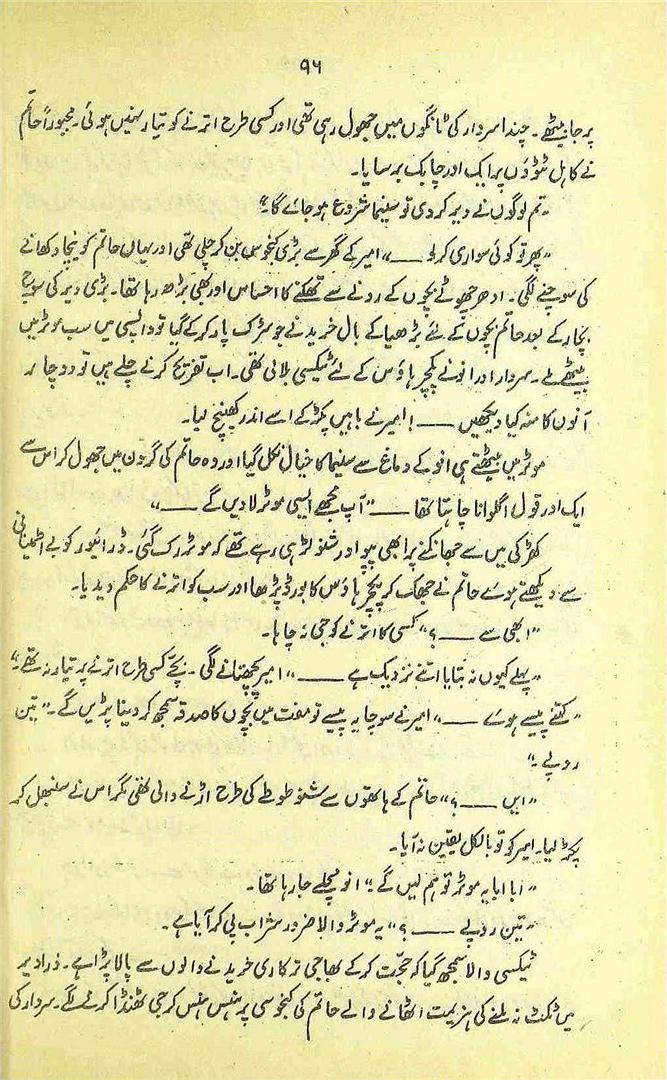 ۹۶
پر جا بیٹھے۔ چندا سردار کی ٹانگوں میں جھول رہی تھی اور کسی طرح اترنے کو تیار نہیں ہوئی۔ مجبوراً حاتم
نے کاہل ٹٹوؤں پر ایک اور چابک برسایا۔
”تم لوگوں نے دیر کر دی تو سنیما شروع ہو جائے گا۔“
”پھر تو کوئی سواری کر لو ——“ امیر کے گھر سے بڑی کنجوس بن کر چلی تھی اور یہاں حاتم کو نیچا دکھانے
کی سوچنے لگی۔ ادھر چھوٹے بچوں کے رونے سے تھکنے کا احساس اور بھی بڑھ رہا تھا۔ بڑی دیر کی سوچ
بچار کے بعد حاتم بچوں کے لئے بڑھیا کے بال خریدنے جو سڑک پار کر کے گیا تو واپسی میں سب موٹر میں
بیٹھے تھے۔ سردار اور انو نے پکچر ہاؤس کے لئے ٹیکسی بلائی تھی۔ اب تفریح کرنے چلے ہیں تو دو چار
آنوں کا منہ کیا دیکھیں ——! امیر نے باہیں پکڑ کے اسے اندر کھینچ لیا۔
موٹر میں بیٹھتے ہی انو کے دماغ سے سنیما کا خیال نکل گیا اور وہ حاتم کی گردن میں جھول کر اس سے
ایک اور قول اگلوانا چاہتا تھا —— ”آپ مجھے ایسی موٹر لا دیں گے ——“
کھڑکی میں سے جھانکنے پر ابھی پپو اور شنو لڑ ہی رہے تھے کہ موٹر رک گئی۔ ڈرائیور کو بے اطمینانی
سے دیکھتے ہوئے حاتم نے جھک کر پکچر ہاؤس کا بورڈ پڑھا اور سب کو اترنے کا حکم دیدیا۔
”ابھی سے ——؟“ کسی کا اترنے کو جی نہ چاہا۔
”پہلے کیوں نہ بتایا اتنے نزدیک ہے ——“ امیر پچھتانے لگی۔ بچے کسی طرح اترنے پر تیار نہ تھے۔“
”کتنے پیسے ہوئے ——“ امیر نے سوچا یہ پیسے تو مفت میں بچوں کا صدقہ سمجھ کر دینا پڑیں گے۔ ”تین
روپے۔“
”ایں ——؟“ حاتم کے ہاتھوں سے شنو طوطے کی طرح اڑنے والی تھی مگر اس نے سنبھل کر
پکڑ لیا۔ امیر کو تو بالکل یقین نہ آیا۔
”ابا ابا یہ موٹر تو ہم لیں گے“ انو مچلے جا رہا تھا۔
”تین روپے ——؟“ یہ موٹر والا ضرور شراب پی کر آیا ہے۔
ٹیکسی والا سمجھ گیا کہ حجت کر کے بھاجی ترکاری خریدنے والوں سے پالا پڑا ہے۔ ذرا دیر
میں ٹکٹ نہ ملنے کی ہزیمت اٹھانے والے حاتم کی کنجوسی پر ہنس ہنس کر جی ٹھنڈا کرنے لگے۔ سردار کی